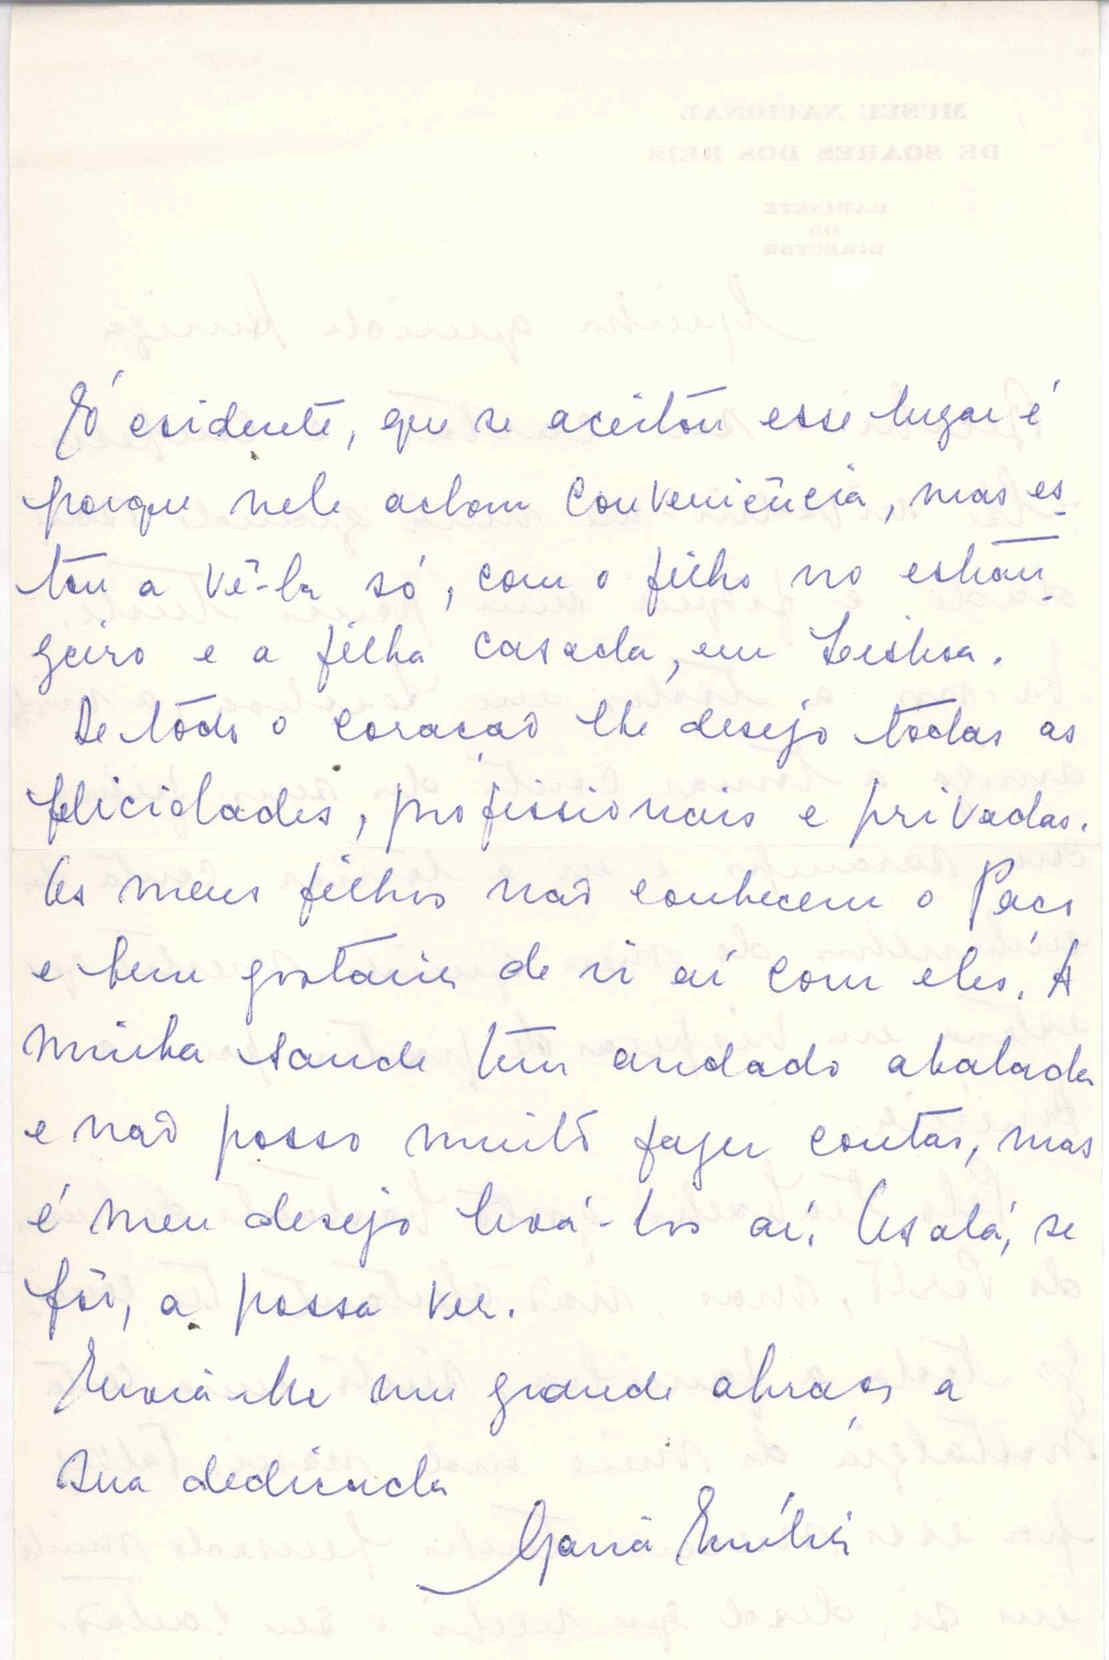 É evidente, que se aceitou esse lugar é
porque nele achou conveniência, mas es-
tou a vê-la só, com o filho no estran-
geiro e a filha casada, em Lisboa.
De todo o coração lhe desejo todas as
felicidades, profissionais e privadas.
Os meus filhos não conhecem o Paço
e bem gostaria de ir aí com eles. A
minha saude tem andado abalada
e não posso muito fazer contas, mas
é meu desejo levá-los aí. Oxalá, se
fôr, a possa ver.
Envia-lhe um grande abraço a
sua dedicada
Maria Emília